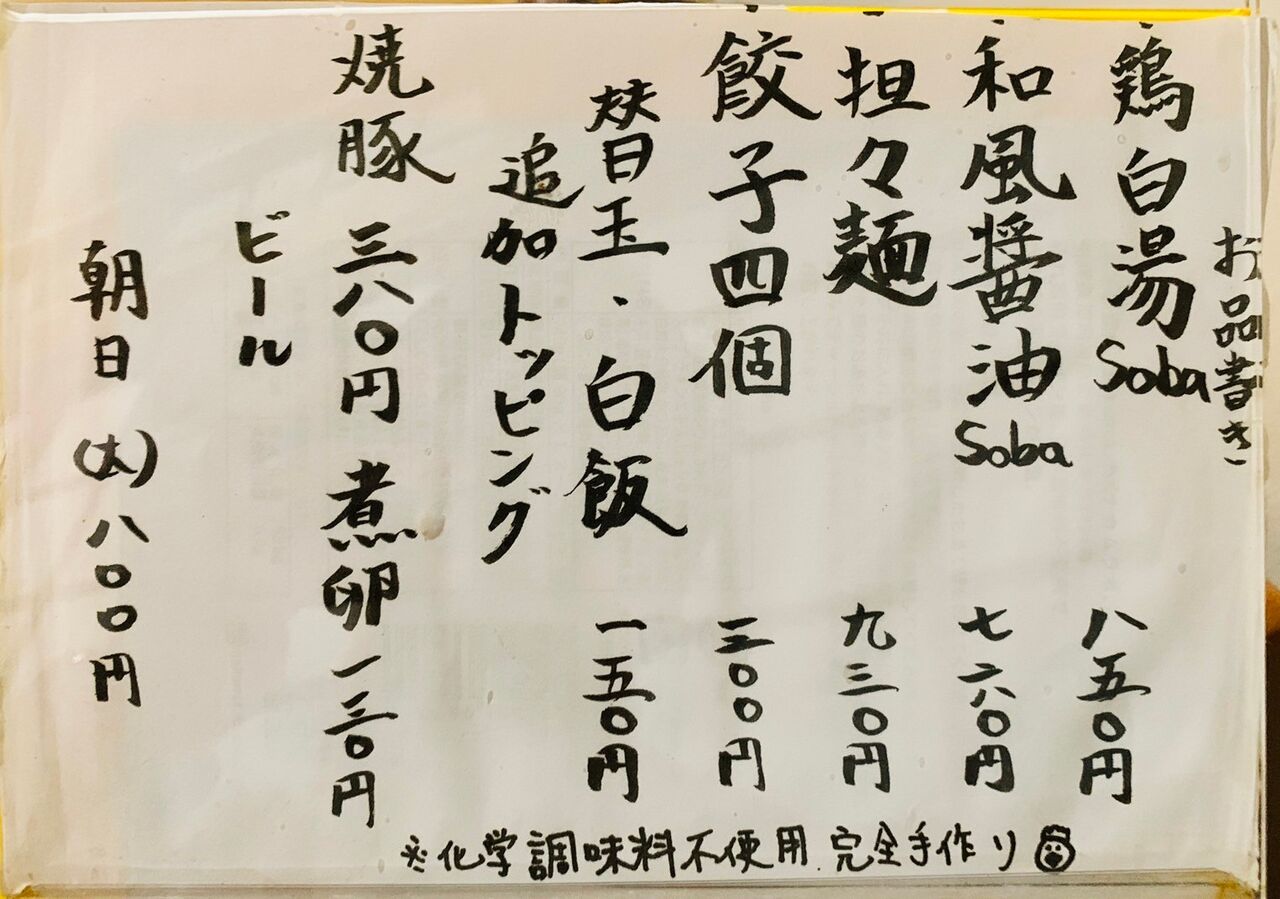 お品書き
・鶏白湯Soba 八五〇円
・和風醤油Soba 七六〇円
・担々麺 九三〇円
・餃子四個 三〇〇円
替玉・白飯 一五〇円
追加トッピング
焼豚 三八〇円 煮卵 一三〇円
ビール
朝日(大) 八〇〇円
※化学調味料不使用.完全手作り